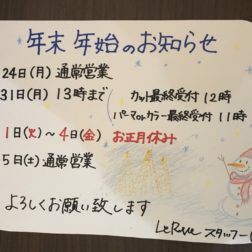 年末年始のお知らせ
24日(月) 通常営業
31日(月) 13時まで
カット最終受付 12時
パーマorカラー最終受付 11時
1日(火)～4日(金) お正月休み
5日(土) 通常営業
よろしくお願い致します
スタッフ一同